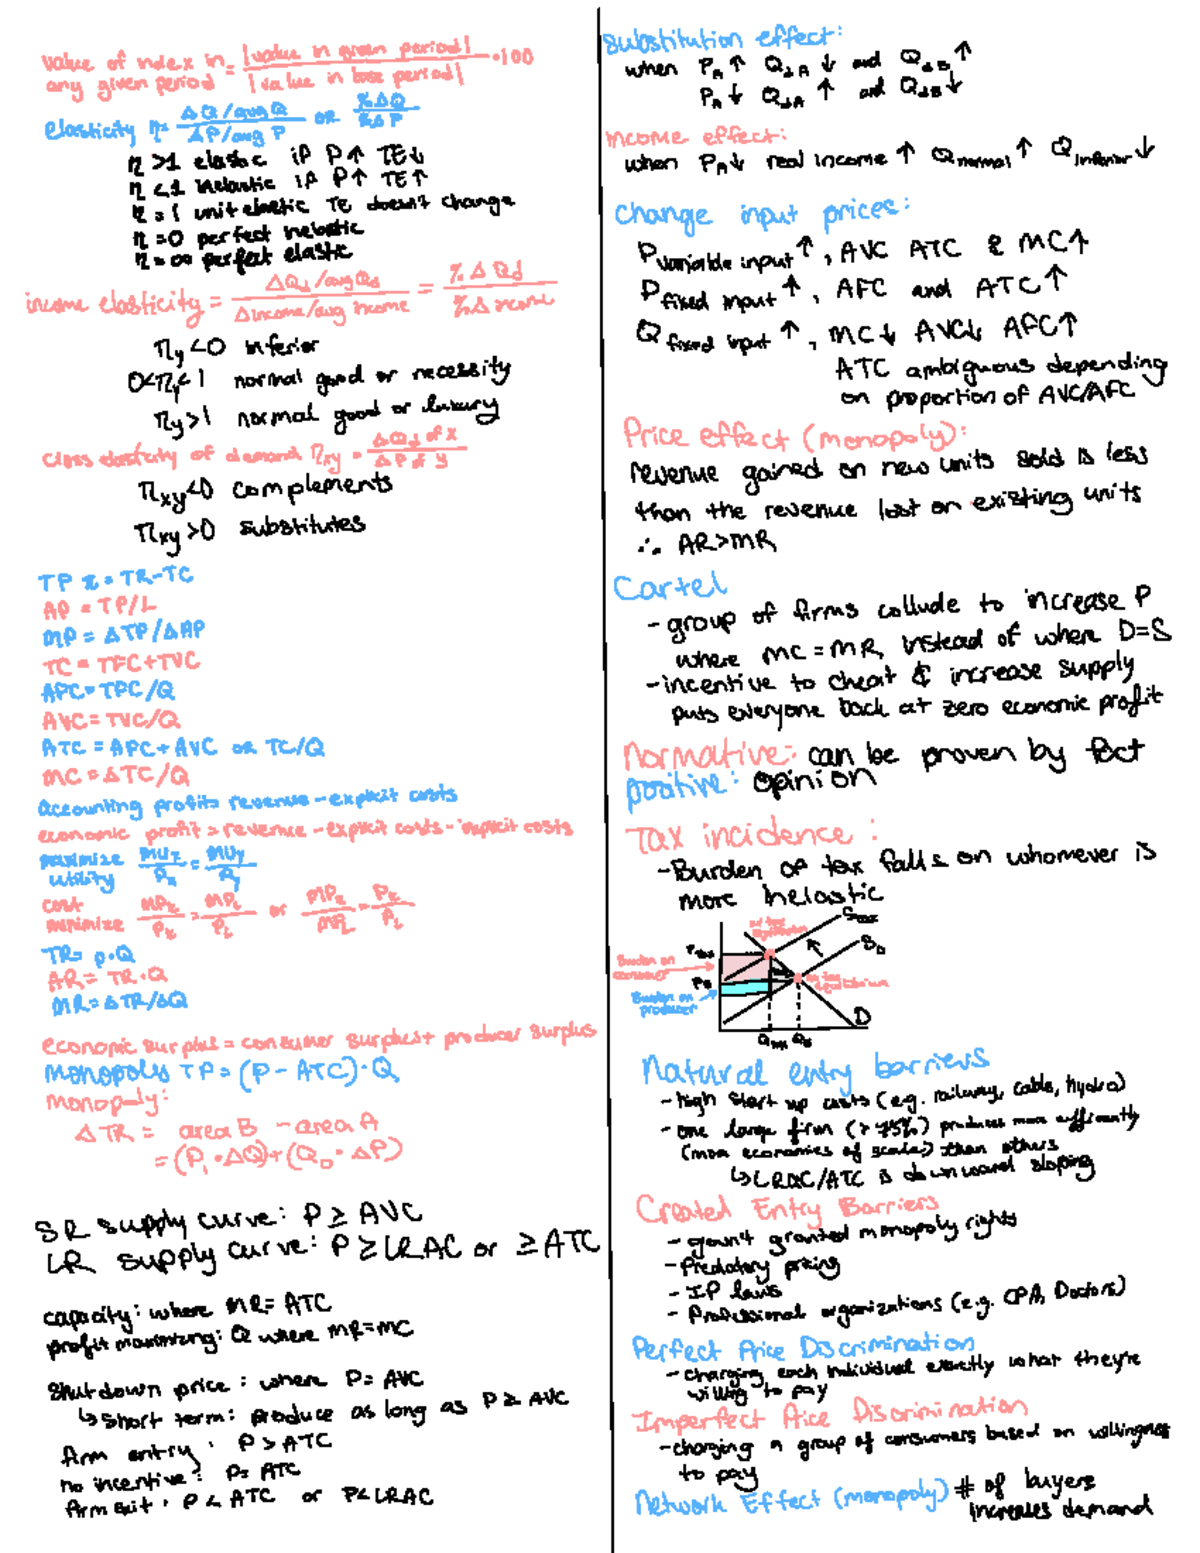 value of index in any given period = |value in given period| / |value in base period| · 100
elasticity η = ΔQ/avg Q / ΔP/avg P or %ΔQ / %ΔP
η >1 elastic if P↑ TE↓
η <1 inelastic if P↑ TE↑
η = 1 unit elastic TE doesn't change
η =0 perfect inelastic
η = ∞ perfect elastic
income elasticity = ΔQd/avg Qd / Δincome/avg income = %ΔQd / %Δincome
ηy <0 inferior
0<ηy<1 normal good or necessity
ηy>1 normal good or luxury
cross elasticity of demand ηxy = ΔQd of x / ΔP of y
ηxy<0 complements
ηxy>0 substitutes
TP π = TR-TC
AP = TP/L
MP = ΔTP/ΔAP
TC = TFC+TVC
AFC = TFC/Q
AVC = TVC/Q
ATC = AFC+AVC or TC/Q
MC = ΔTC/Q
accounting profit = revenue - explicit costs
economic profit = revenue - explicit costs - implicit costs
maximize utility MUx/Px = MUy/Py
cost minimize MPk/Pk = MPL/PL or MPk/MPL = Pk/PL
TR= p·Q
AR= TR·Q
MR= ΔTR/ΔQ
economic surplus = consumer surplus + producer surplus
monopoly TP = (P - ATC)·Q
monopoly:
ΔTR = area B - area A
= (P₁·ΔQ)+(Q₀·ΔP)
SR supply curve: P ≥ AVC
LR supply curve: P ≥ LRAC or ≥ ATC
capacity: where MR= ATC
profit maximizing: Q where MR=MC
Shutdown price : where P= AVC
↳ short term: produce as long as P ≥ AVC
firm entry : P > ATC
no incentive : P= ATC
firm exit : P < ATC or P<LRAC
substitution effect:
when PA↑ QdA↓ and QdB↑
PA↓ QdA↑ and QdB↓
income effect:
when PA↓ real income ↑ Qnormal↑ Qinferior↓
change input prices:
Pvariable input↑, AVC ATC & MC↑
Pfixed input↑, AFC and ATC↑
Qfixed input↑, MC↓ AVC↓ AFC↑
ATC ambiguous depending
on proportion of AVC/AFC
Price effect (monopoly):
revenue gained on new units sold is less
than the revenue lost on existing units
∴ AR>MR
Cartel
- group of firms collude to increase P
where MC = MR, instead of where D=S
- incentive to cheat & increase supply
puts everyone back at zero economic profit
normative: can be proven by fact
positive: opinion
Tax incidence :
- Burden of tax falls on whomever is
more inelastic
w/ tax equilibrium
Stax
Ptax
S₀
Burden on consumer
P₀
no tax equilibrium
Burden on producer
D
Qtax Q₀
Natural entry barriers
- high start up costs (e.g. railway, cable, hydro)
- one large firm (>75%) produces more efficiently
(more economies of scale) than others
↳ LRAC/ATC is downward sloping
Created Entry Barriers
- gown't granted monopoly rights
- Predatory pricing
- IP laws
- Professional organizations (e.g. CPA, Doctors)
Perfect Price Discrimination
- charging each individual exactly what they're
willing to pay
Imperfect Price Discrimination
- charging a group of consumers based on willingness
to pay
Network Effect (monopoly) # of buyers
increases demand